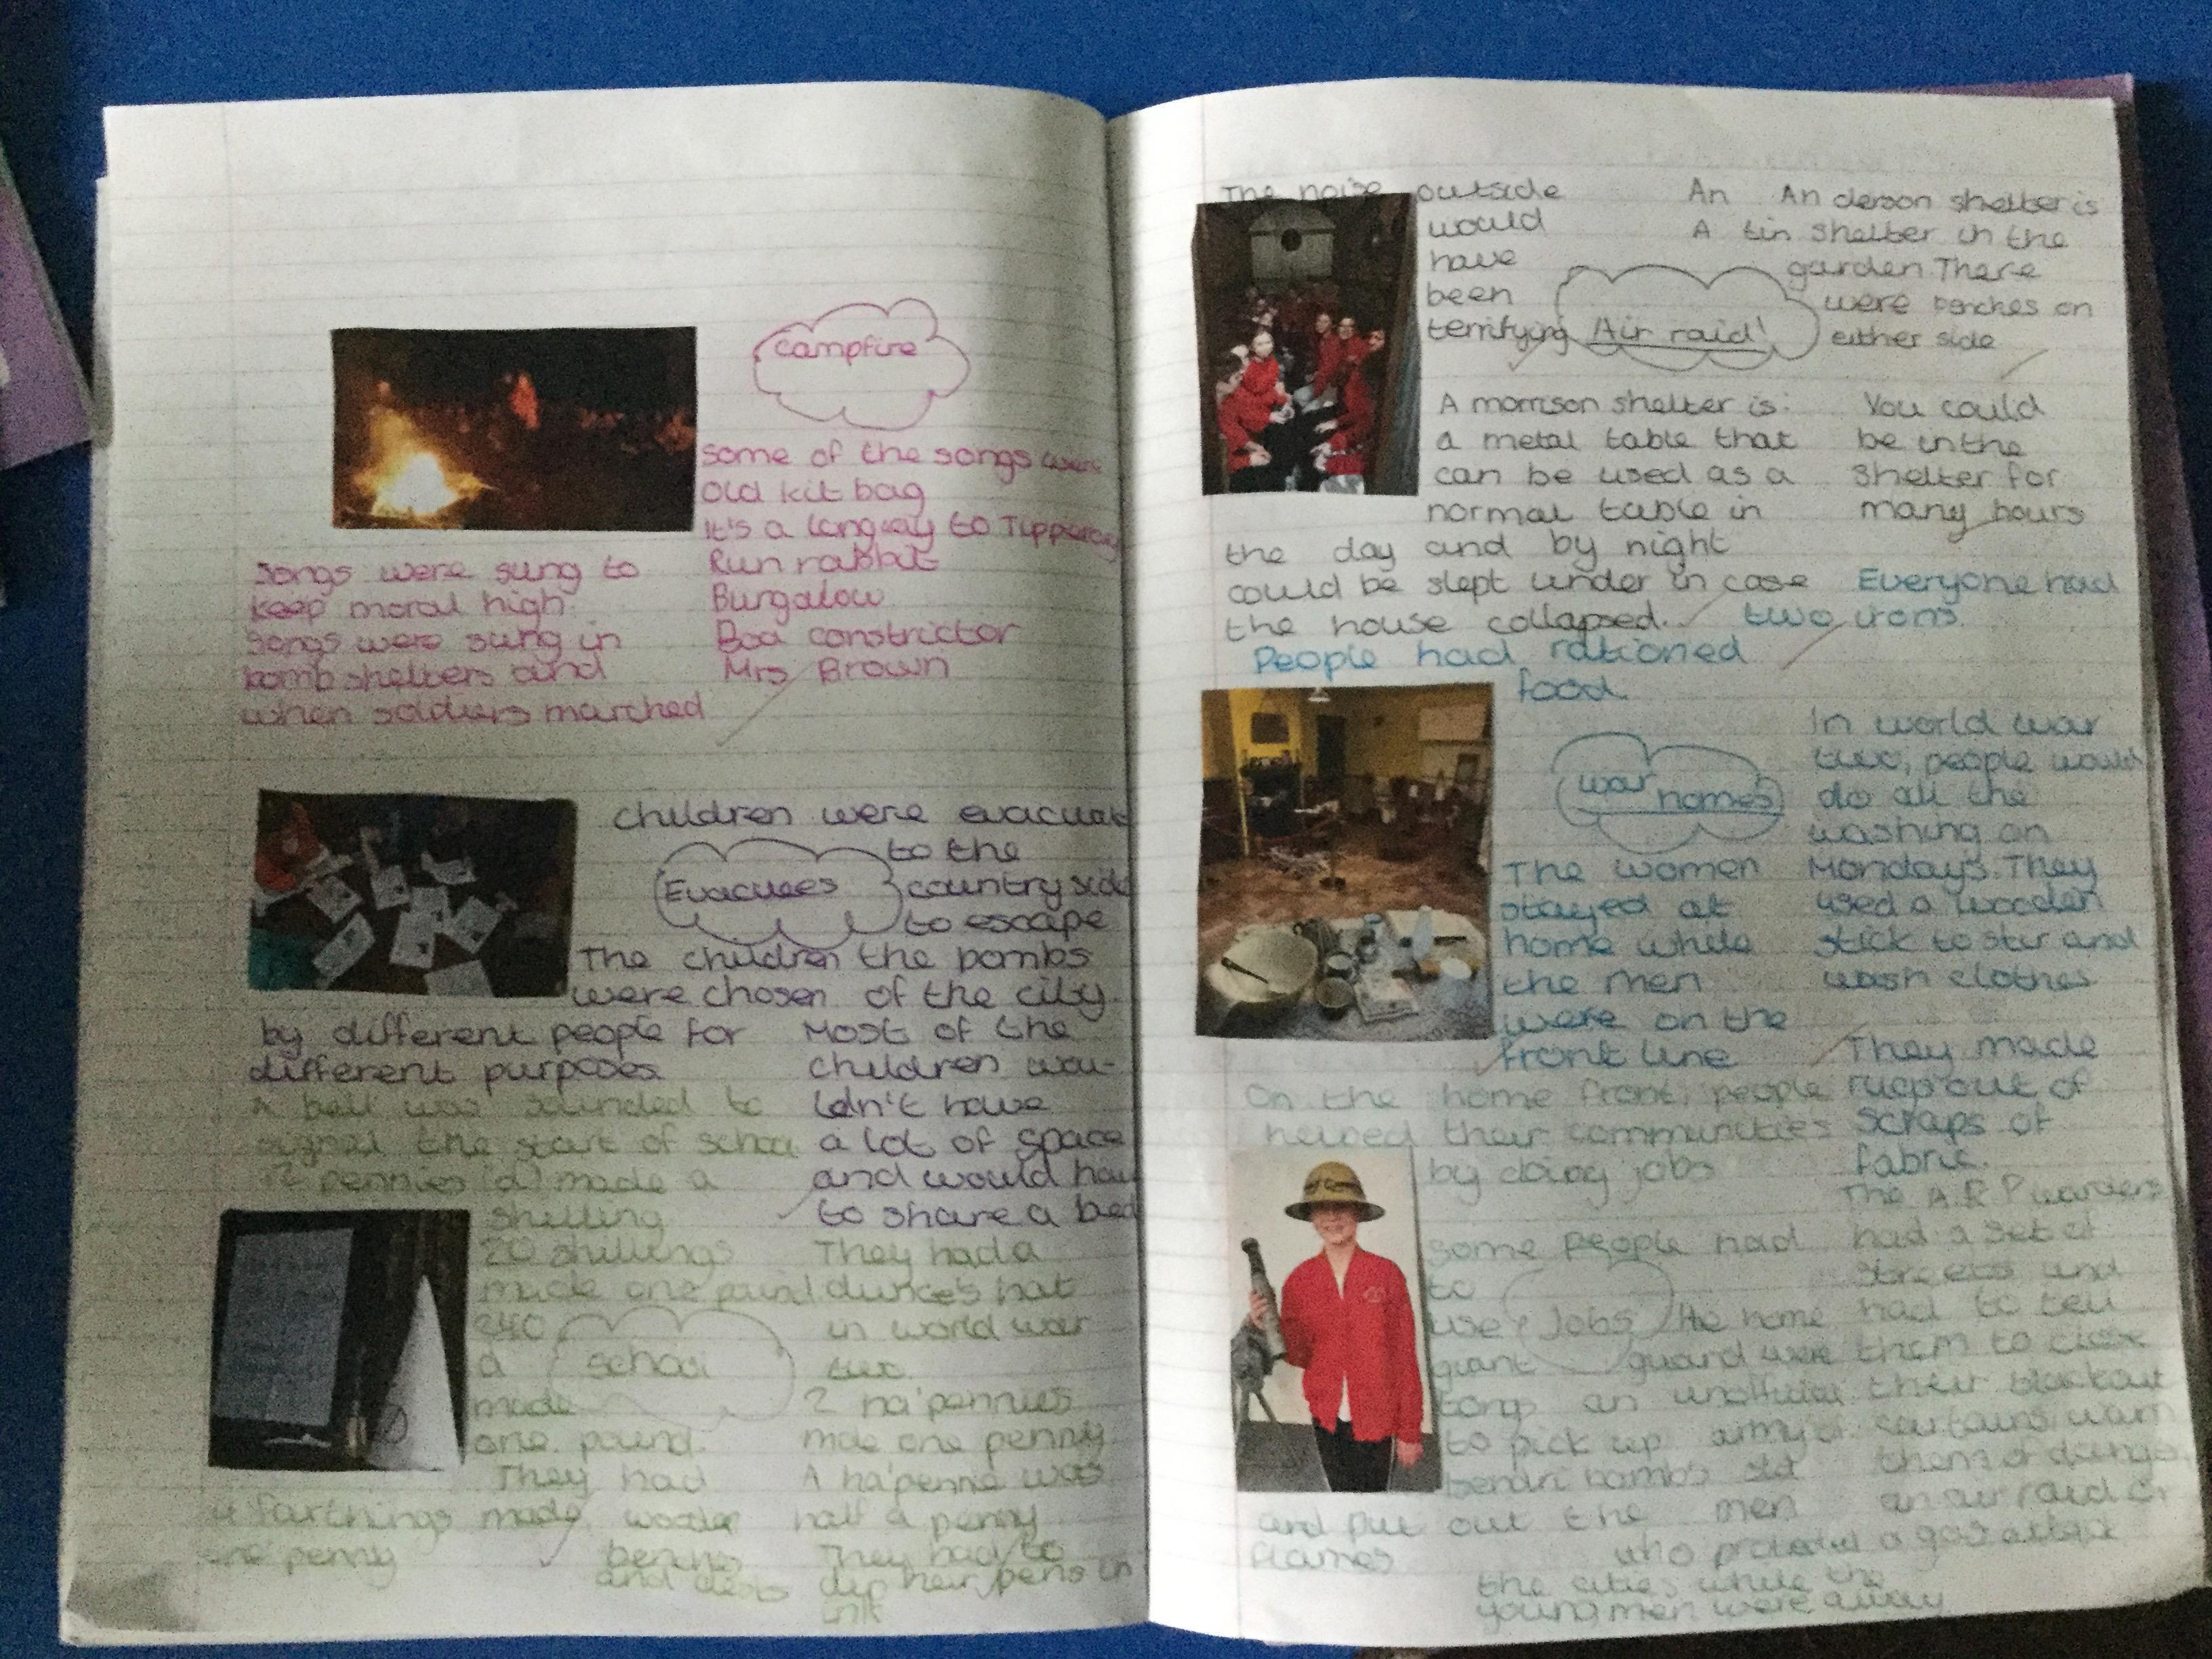 Campfire
some of the songs were
Old kit bag
It's a long way to Tipperary
Run rabbit
Bungalow
Boa constrictor
Mrs Brown
Songs were sung to
keep moral high.
Songs were sung in
bomb shelters and
when soldiers marched
Evacuees
children were
to the
country side
to escape
the bombs
of the city.
The children
were chosen
by different people for
different purposes.
Most of the
children wou-
ldn't have
a lot of space
and would have
to share a bed
A bell was sounded to
signal the start of school
12 pennies (d) made a
shilling
20 shillings
made one pound
240
d
made
one pound.
They had
wooden
benches
and desks
4 farthings made
one penny
school
They had a
dunce's hat
in world war
two.
2 ha'pennies
made one penny
A ha'pennie was
half a penny
They had to
dip their pens in
ink
The noise outside
would
have
been
terrifying
Air raid!
An Anderson shelter is
A tin shelter in the
garden. There
were benches on
either side
A morrison shelter is
a metal table that
can be used as a
normal table in
the day and by night
could be slept under in case
the house collapsed.
You could
be in the
shelter for
many hours
Everyone had
two irons.
People had rationed
food.
war homes
In world war
two, people would
do all the
washing on
Mondays. They
used a wooden
stick to stir and
wash clothes
The women
stayed at
home while
the men
were on the
front line
They made
rugs out of
scraps of
fabric.
On the home front, people
helped their communities
by doing jobs
Jobs
some people had
to
use
giant
tongs
to pick up
bombs
and put out the
flames
The home
guard were
an unofficial
army of
old
men
who protected
the cities while the
young men were away
The A.R.P wardens
had a set of
streets and
had to tell
them to close
their blackout
curtains warn
them of
an air raid or
a gas attack